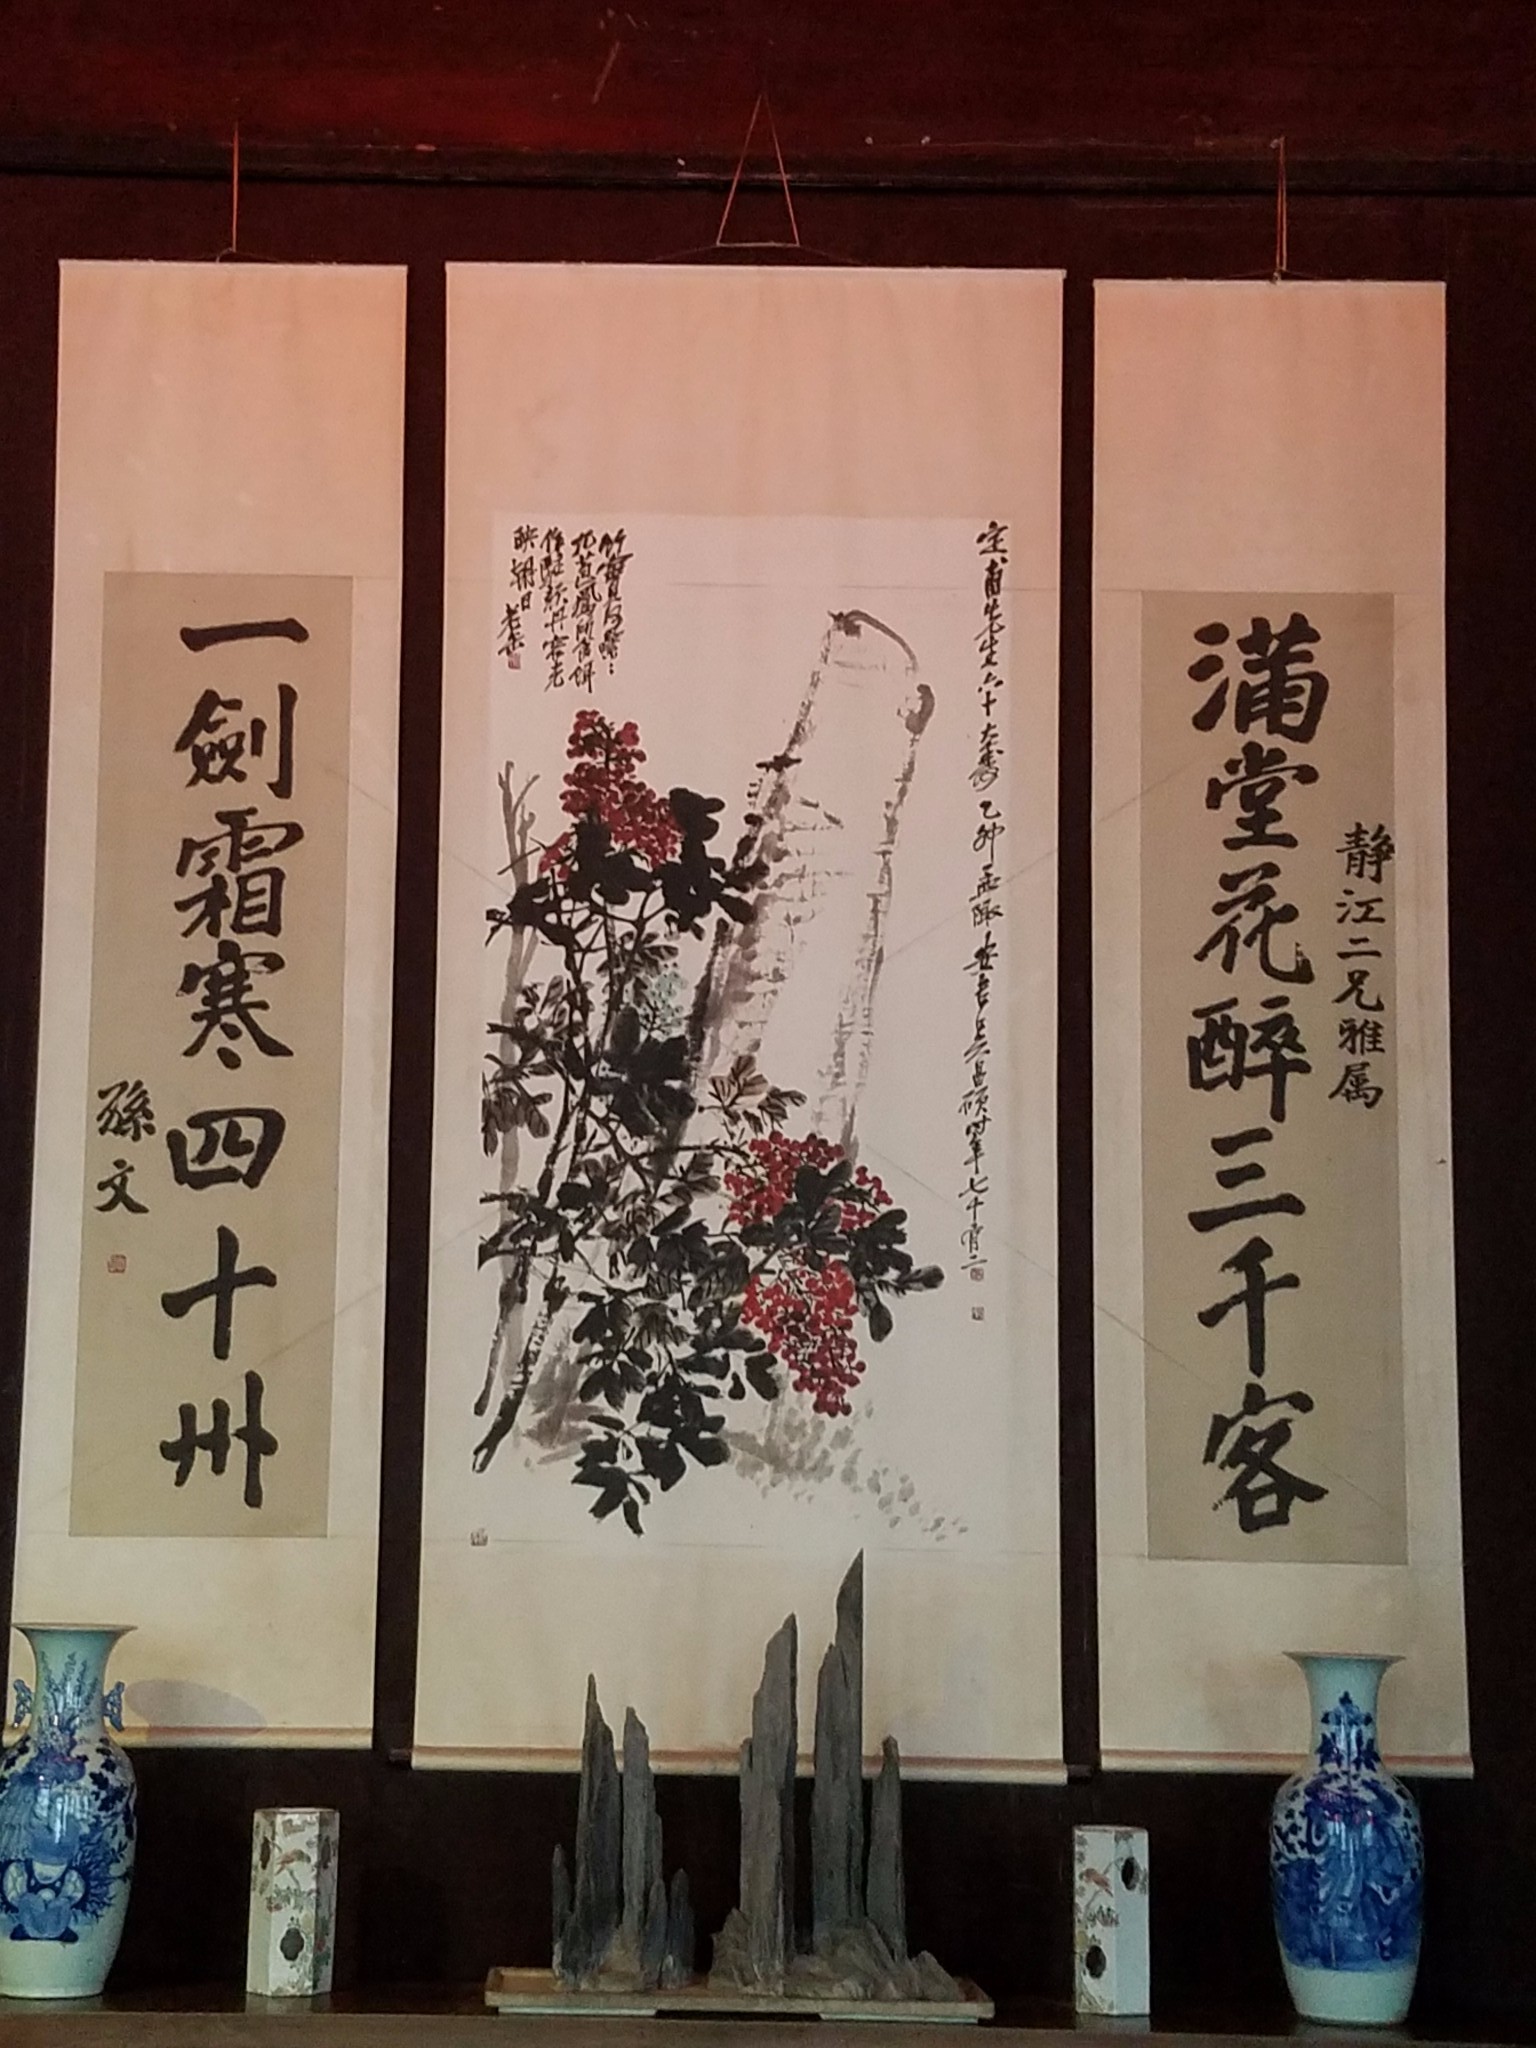 静江二兄雅属
滿堂花醉三千客
定甫先生六十大壽 乙卯孟陬 安吉吳昌碩時年七十有二
映朝日 老缶
一劍霜寒四十州
孫文